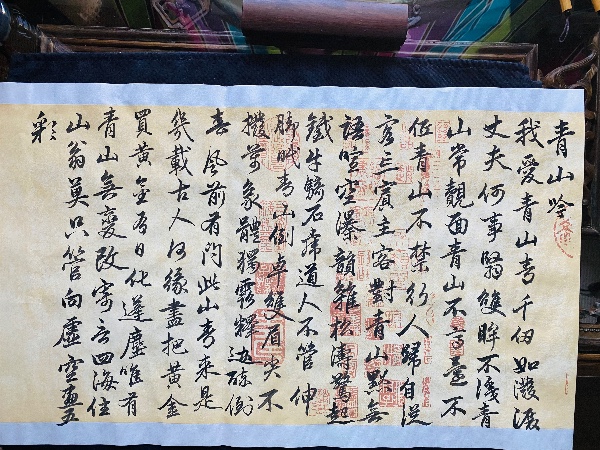 青山吟
我愛青山青千仞如潑
丈夫何事翳雙眸不淺青
山常面青山不不
任青山不禁行人歸自從
賓主客對青山默無
語喧空瀑韻雜松濤驚起
鐵牛石虎道人不管伸
腳眠青山倒卓雙眉尖不
撥萬象體獨露釋迦倒
春風前有問此山青來是
幾載古人何緣盡把黃金
買黃金有日化塵唯有
青山無變改寄言四海住
山翁莫只管向虛空畫五
彩